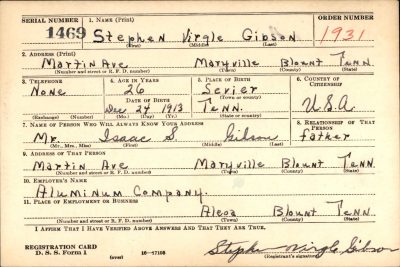 SERIAL NUMBER 1. NAME (Print) ORDER NUMBER
1469 Stephen Virgle Gibson 1931
(First) (Middle) (Last)
2. ADDRESS (Print)
Martin Ave Maryville Blount Tenn.
(Number and street or R. F. D. number) (Town) (County) (State)
3. TELEPHONE 4. AGE IN YEARS 5. PLACE OF BIRTH 6. COUNTRY OF CITIZENSHIP
None 26 Sevier
(Town or county)
DATE OF BIRTH
Dec 24 1913 Tenn. U.S.A
(Exchange) (Number) (Mo.) (Day) (Yr.) (State or country)
7. NAME OF PERSON WHO WILL ALWAYS KNOW YOUR ADDRESS 8. RELATIONSHIP OF THAT PERSON
Mr. Isaac S. Gibson father
(Mr., Mrs., Miss) (First) (Middle) (Last)
9. ADDRESS OF THAT PERSON
Martin Ave Maryville Blount Tenn.
(Number and street or R. F. D. number) (Town) (County) (State)
10. EMPLOYER'S NAME
Aluminum Company.
11. PLACE OF EMPLOYMENT OR BUSINESS
Alcoa Blount Tenn
(Number and street or R. F. D. number) (Town) (County) (State)
I AFFIRM THAT I HAVE VERIFIED ABOVE ANSWERS AND THAT THEY ARE TRUE.
REGISTRATION CARD
D. S. S. Form 1 (over) 16—17105 Stephen Virgle Gibson
(Registrant's signature)